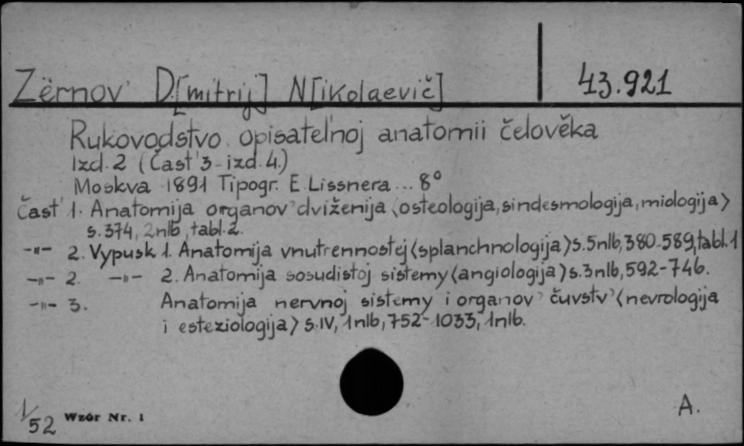 Zërnov' D[mitrij] N[ikolaevič] 43.921
Rukovodstvo opisatel'noj anatomii čelověka
Izd. 2 (Čast' 3 - izd. 4.)
Moskva 1891 Tipogr. E. Lissnera... 8°
Čast' 1. Anatomija organov' dviženija (osteologija, sindesmologija, miologija)
s. 374, 2nlb, tabl. 2.
-"- 2. Vypusk 1. Anatomija vnutrennostej (splanchnologija) s. 5nlb, 380-589, tabl. 1
-"- 2. -"- 2. Anatomija sosudistoj sistemy (angiologija) s. 3nlb, 592-746.
-"- 3. Anatomija nervnoj sistemy i organov' čuvstv' (nevrologija
i esteziologija) s. IV, 1nlb, 752-1033, 1nlb.
1/52 Wzór Nr. 1 A.